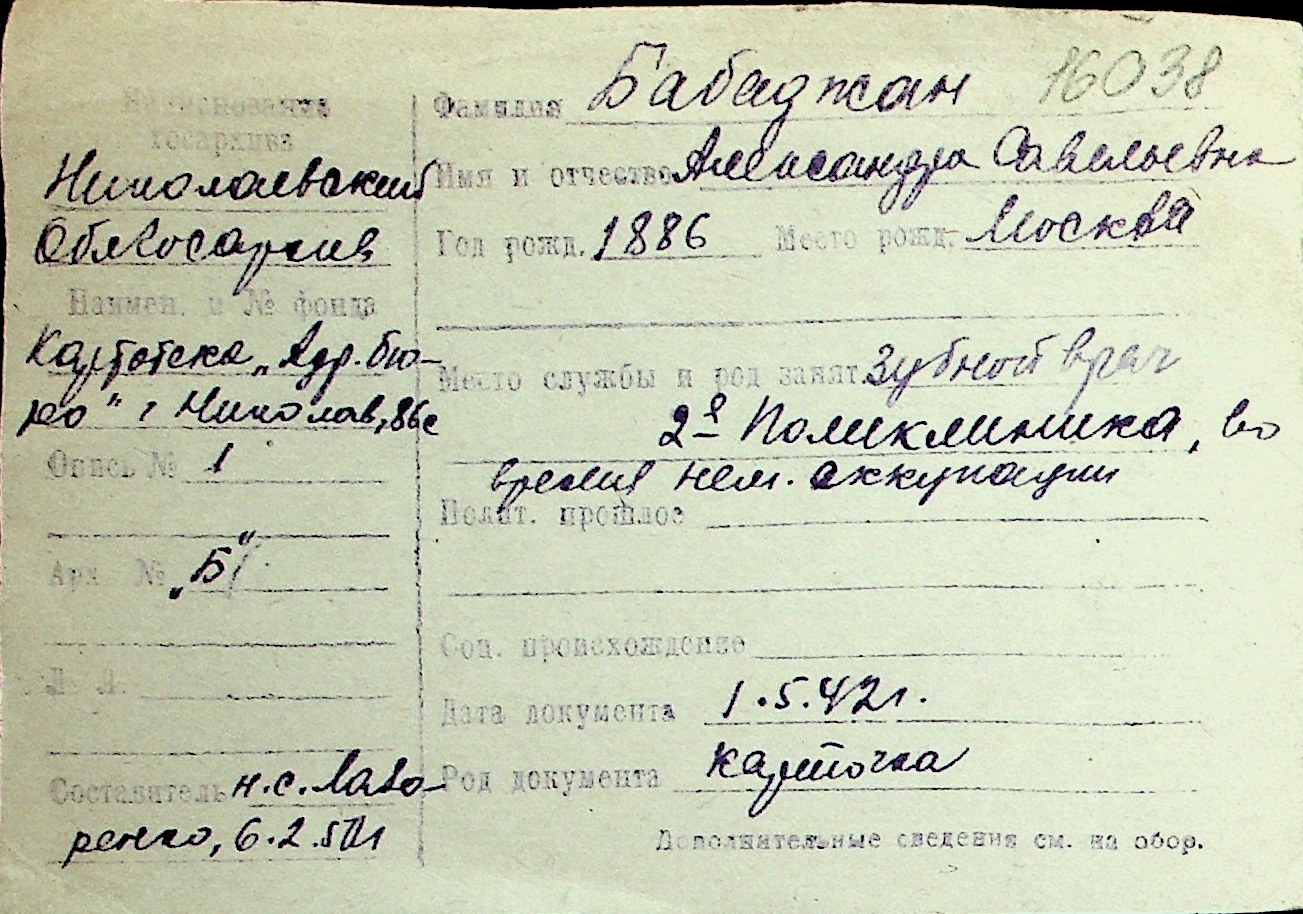 Наименование
госархива
Николаевский
Облгосархив
Наимен. и № фонда
Картотека „Адр. бю-
ро" г Николав,
Опись № 1
Арх. № „Б"
Л. Л.
Составитель н.с. Лаво-
ренко, 6.2.
16038
Фамилия Бабаджан
Имя и отчество Александра Савельевна
Год рожд. 1886 Место рожд. Москва
Место службы и род занят. Зубной врач
2я Поликлиника, во
время нем. аккупации
Полит. прошлое
Соц. происхождение
Дата документа 1.5.42г.
Род документа карточка
Дополнительные сведения см. на обор.